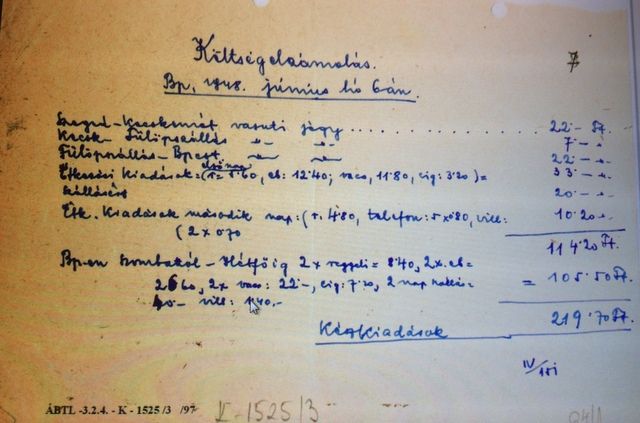 7
Költségelszámolás.
Bp, 1948. június hó 6án.
Szeged-Kecskemét vasuti jegy .................. 22.- Ft.
Kecsk-Fülöpszállás -"- -"- 7 - "-
Fülöpszállás-Bpest -"- -"- 22 - "-
első nap
Étkezési Kiadások=(r= 5.60, eb: 12.40; vacs, 11.80, cig: 3.20)= 33 - "-
szállásért 20 - "-
Étk. Kiadások második nap: (r. 4.80, telefon: 5 x 0.80, vill: 10.20 "-
(2 x 0.70
114.20 Ft.
Bp-en szombatól - Hétfőig 2x reggeli= 8.40, 2x. eb=
26.60, 2x vacs: 22-, cig: 7.20, 2 nap szállás= = 105.50 Ft.
40- vill: 1.40.-
219.70 Ft.
Kézkiadások
IV/
ÁBTL -3.2.4. - K - 1525 /3 /97
K-1525/3